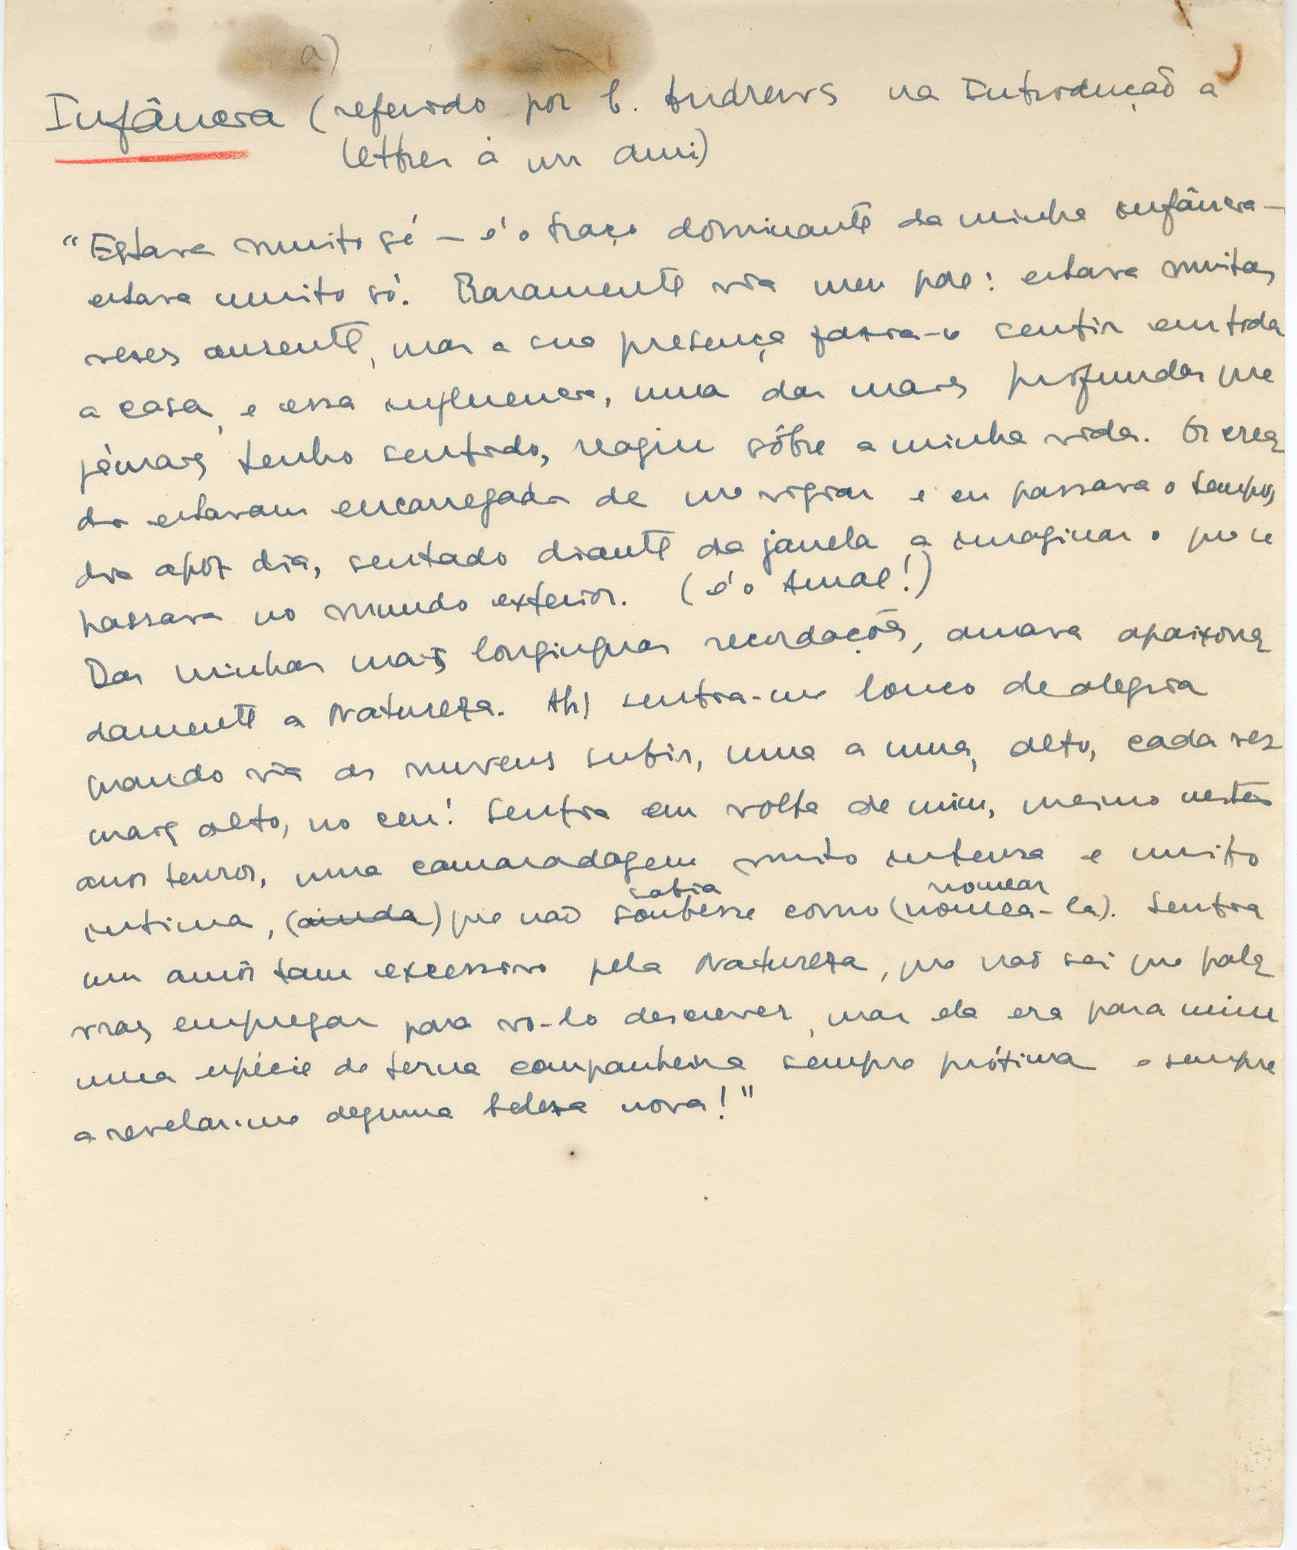 a)
Infância (referido por C. Andrews na Introdução a
Lettres à un ami)
"Estava muito só — é o traço dominante da minha infância —
estava muito só. Raramente via meu pae: estava muitas
vezes ausente, mas a sua presença fazia-se sentir em toda
a casa, e essa influencia, uma das mais profundas que
jámais tenho sentido, reagiu sôbre a minha vida. Os crea
dos estavam encarregados de me vigiar e eu passava o tempo,
dia apóz dia, sentado diante da janela a imaginar o que se
passava no mundo exterior. (é o Amal!)
Das minhas mais longinquas recordações, amava apaixona
damente a Natureza. Ah! sentia-me louco de alegria
quando via as nuvens subir, uma a uma, alto, cada vez
mais alto, no ceu! Sentia em volta de mim, mesmo nestes
anos tenros, uma camaradagem muito intensa e muito
sabia nomear
intima, (ainda) que não soubesse como (nomea-la). Sentia
um amôr tam excessivo pela Natureza, que não sei que pala
vras empregar para vo-lo descrever, mas ela era para mim
uma espécie de terna companheira sempre próxima e sempre
a revelar-me alguma beleza nova!"